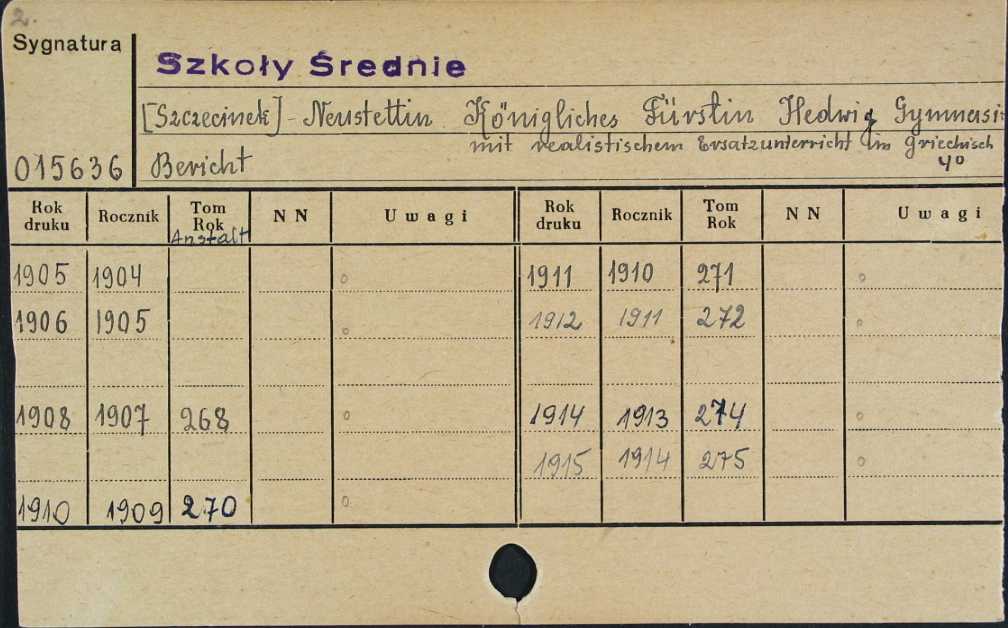 2.
Sygnatura
Szkoły Średnie
[Szczecinek] - Neustettin Königliches Fürstin Hedwig Gymnasi
mit realistischem Ersatzunterricht im Griechisch
015636 Bericht 4º
Rok druku Rocznik Tom Rok NN Uwagi Rok druku Rocznik Tom Rok NN Uwagi
Anstalt
1905 1904 o 1911 1910 271 o
1906 1905 o 1912 1911 272 o
1908 1907 268 o 1914 1913 274 o
1915 1914 275 o
1910 1909 270 o